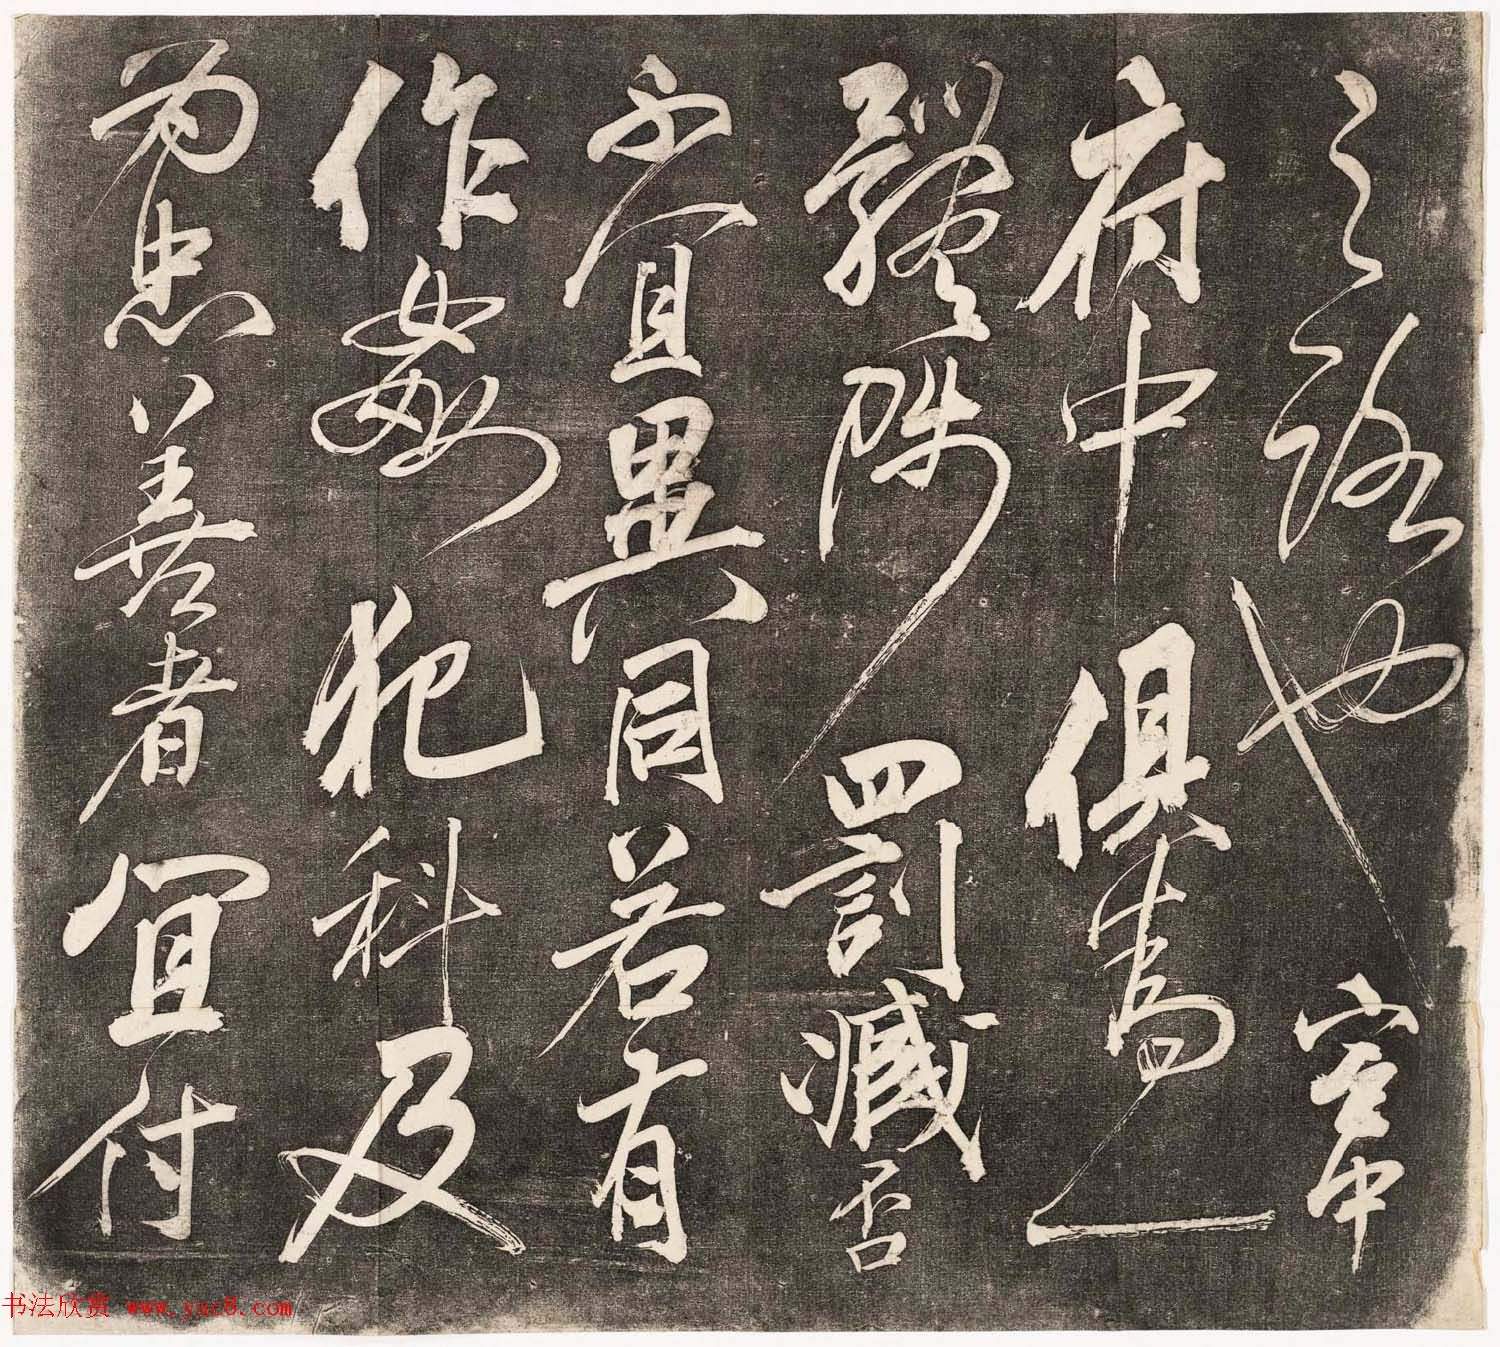 之路也宮中
府中俱為一
體陟罰臧否
不宜異同若有
作姦犯科及
為忠善者宜付
书法欣赏 www.yac8.com